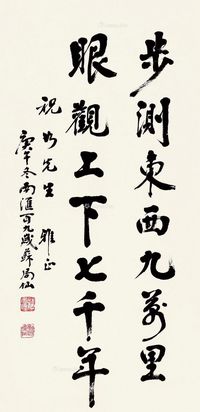 步測東西九萬里
眼觀上下七千年
祝 先生 雅正
庚午冬南滙百九歲蘇局仙